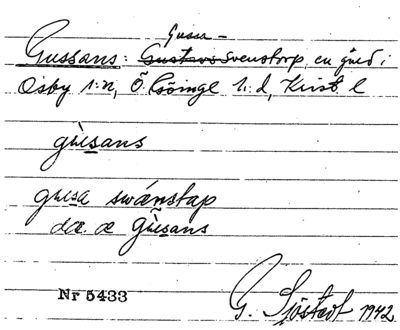 Gusa-
Gussans: Gustavs Svenstorp, en gård i
Osby s:n, Ö. Göinge h:d, Krist. l
gùsans
gusa swánstap
dæ. æ Gùsans
Nr 5433 G. Sjöstedt 1942